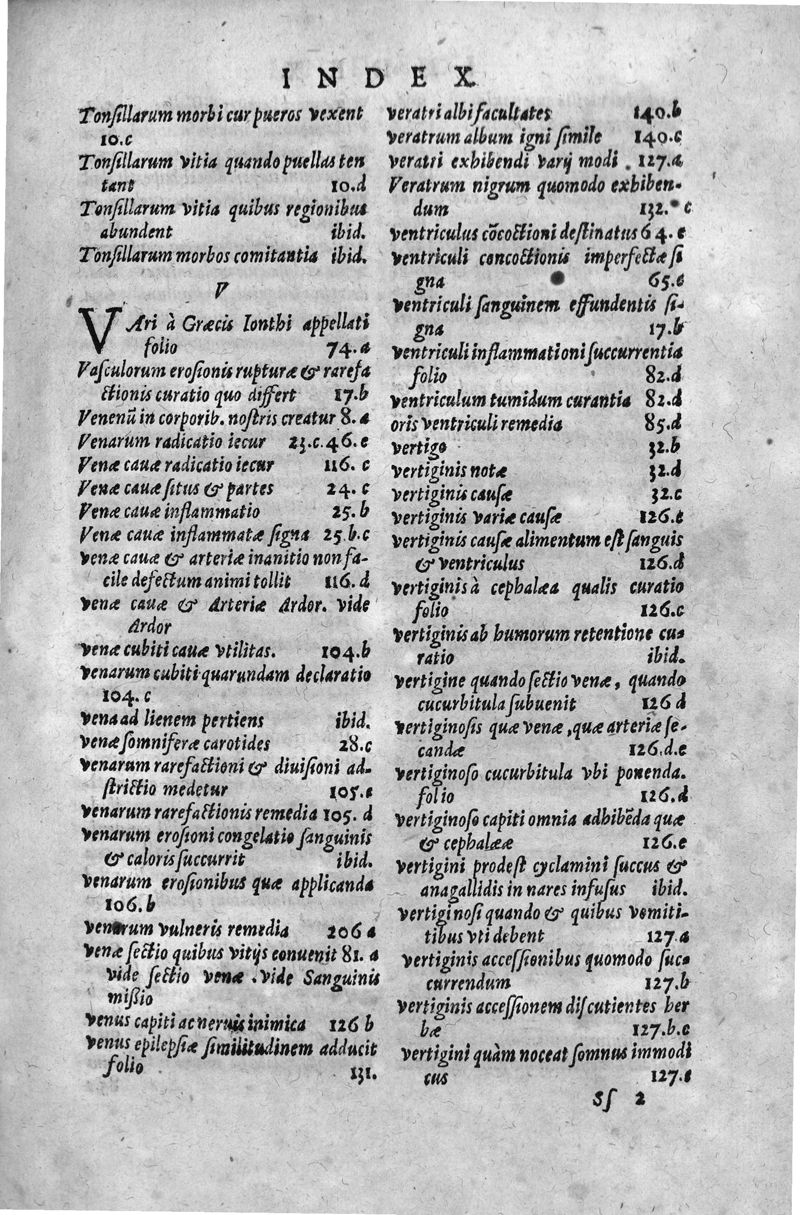 INDEX
Tonſillarum morbi cur pueros vexent
10.c
Tonſillarum vitia quando puellas ten
tant 10.d
Tonſillarum vitia quibus regionibus
abundent ibid.
Tonſillarum morbos comitantia ibid.
V
VAri à Græcis Ionthi appellati
folio 74.a
Vaſculorum eroſionis rupturæ & rarefa
ctionis curatio quo differt 17.b
Venenū in corporib. noſtris creatur 8.a
Venarum radicatio iecur 23.c.46.e
Venæ cauæ radicatio iecur 116.c
Venæ cauæ ſitus & partes 24.c
Venæ cauæ inflammatio 25.b
Venæ cauæ inflammatæ ſigna 25.b.c
venæ cauæ & arteriæ inanitio non fa-
cile defectum animi tollit 116.d
venæ cauæ & Arteriæ Ardor. vide
Ardor
venæ cubiti cauæ vtilitas. 104.b
venarum cubiti quarundam declaratio
104.c
vena ad lienem pertiens ibid.
venæ ſomniferæ carotides 28.c
venarum rarefactioni & diuiſioni ad-
ſtrictio medetur 105.e
venarum rarefactionis remedia 105.d
venarum eroſioni congelatio ſanguinis
& caloris ſuccurrit ibid.
venarum eroſionibus quæ applicanda
106.b
venarum vulneris remedia 206 a
venæ ſectio quibus vitijs conuenit 81.a
vide ſectio venæ . vide Sanguinis
miſsio
venus capiti ac neruis inimica 126 b
venus epilepſiæ ſimilitudinem adducit
folio 131.
veratri albi facultates 140.b
veratrum album igni ſimile 140.c
veratri exhibendi varij modi . 127.a
Veratrum nigrum quomodo exhiben-
dum 132. c
ventriculus cōcoctioni deſtinatus 64.e
ventriculi concoctionis imperfectæ ſi
gna 65.e
ventriculi ſanguinem effundentis ſi-
gna 17.b
ventriculi inflammationi ſuccurrentia
folio 82.d
ventriculum tumidum curantia 82.d
oris ventriculi remedia 85.d
vertigo 32.b
vertiginis notæ 32.d
vertiginis cauſæ 32.c
vertiginis variæ cauſæ 126.e
vertiginis cauſæ alimentum eſt ſanguis
& ventriculus 126.d
vertiginis à cephalæa qualis curatio
folio 126.c
vertiginis ab humorum retentione cu-
ratio ibid.
vertigine quando ſectio venæ, quando
cucurbitula ſubuenit 126 d
vertiginoſis quæ venæ, quæ arteriæ ſe-
candæ 126.d.e
vertiginoſo cucurbitula vbi ponenda.
folio 126.d
vertiginoſo capiti omnia adhibēda quæ
& cephalææ 126.e
vertigini prodeſt cyclamini ſuccus &
anagallidis in nares infuſus ibid.
vertiginoſi quando & quibus vomiti-
tibus vti debent 127.a
vertiginis acceſsionibus quomodo ſuc-
currendum 127.b
vertiginis acceſsionem diſcutientes her
bæ 127.b.c
vertigini quàm noceat ſomnus immodi
cus 127.e
Sſ 2